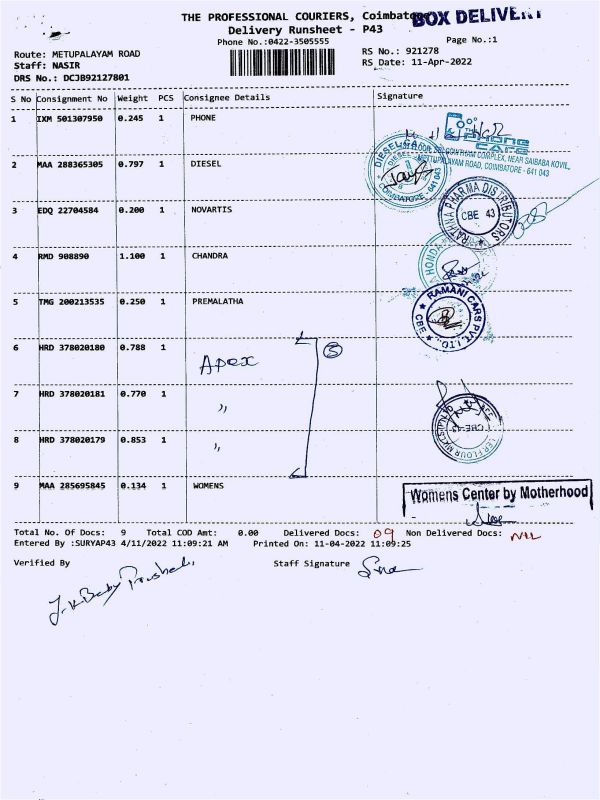 THE PROFESSIONAL COURIERS, Coimbatore
BOX DELIVERY
Delivery Runsheet - P43
Phone No.:0422-3505555
Page No.:1
Route: METUPALAYAM ROAD
RS No.: 921278
Staff: NASIR
RS Date: 11-Apr-2022
DRS No.: DCJB92127801
S No Consignment No Weight PCS Consignee Details Signature
1 IXM 501307950 0.245 1 PHONE
PHONE CARE
COMPLEX, NEAR SAIBABA KOVIL,
METTUPALAYAM ROAD, COIMBATORE - 641 043
2 MAA 288365305 0.797 1 DIESEL
COIMBATORE - 641 043
3 EDQ 22704584 0.200 1 NOVARTIS
RATHNA PHARMA DISTRIBUTORS
CBE 43
4 RMD 908890 1.100 1 CHANDRA
HONDA
5 TMG 200213535 0.250 1 PREMALATHA
RAMANI CARS PVT. LTD., CBE
6 HRD 378020180 0.788 1 Apex
3
7 HRD 378020181 0.770 1 "
8 HRD 378020179 0.853 1 "
CBE-43
9 MAA 285695845 0.134 1 WOMENS
Womens Center by Motherhood
Total No. Of Docs: 9 Total COD Amt: 0.00 Delivered Docs: 09 Non Delivered Docs: NIL
Entered By :SURYAP43 4/11/2022 11:09:21 AM Printed On: 11-04-2022 11:09:25
Verified By Staff Signature